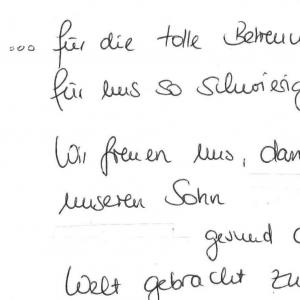 ... für die tolle Betreuu
für uns so schwierig
Wir freuen uns, dan
unseren Sohn
gesund
Welt gebracht zu